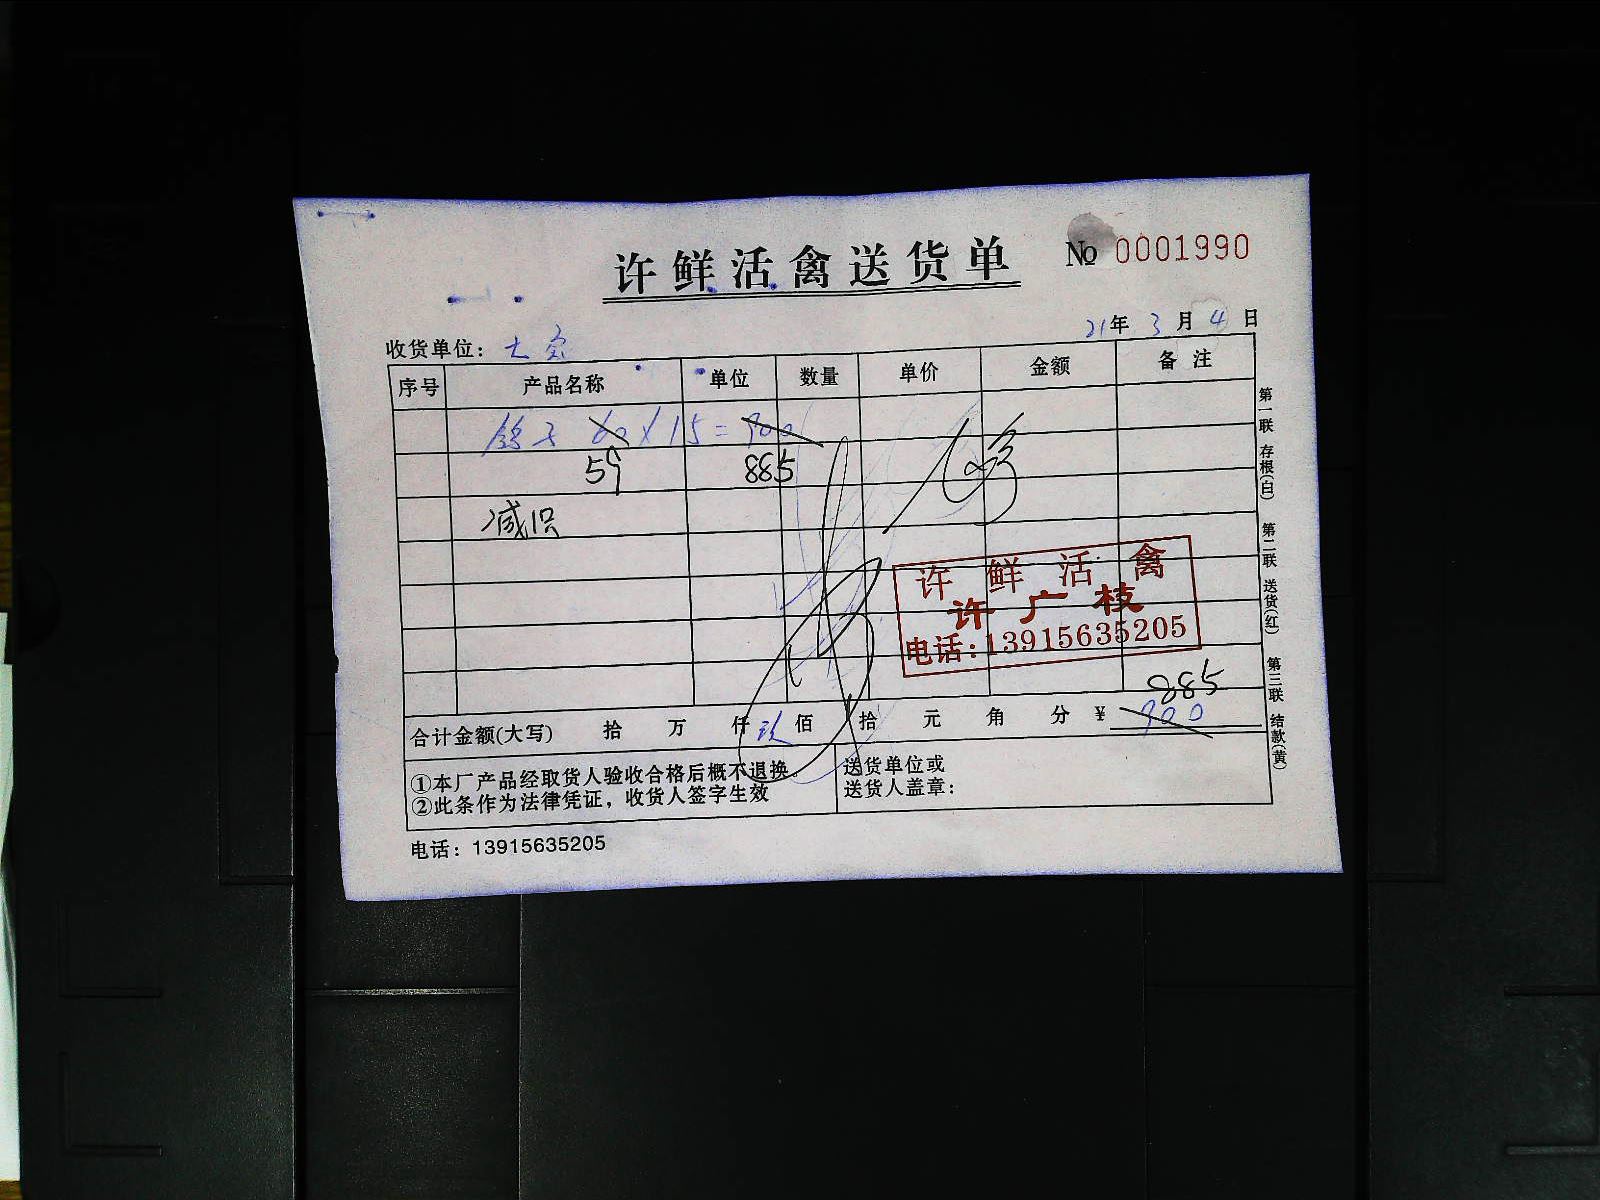 许鲜活禽送货单 № 0001990
21年 3月 4日
收货单位：七宝
序号 产品名称 单位 数量 单价 金额 备注
鸽子 60 X 15 = 900
59 885
减1只
许鲜活禽
许广枝
电话:13915635205
885
合计金额(大写) 拾 万 仟 玖 佰 拾 元 角 分 ¥ 900
①本厂产品经取货人验收合格后概不退换。
②此条作为法律凭证，收货人签字生效
送货单位或
送货人盖章：
电话：13915635205
第一联 存根(白) 第二联 送货(红) 第三联 结款(黄)